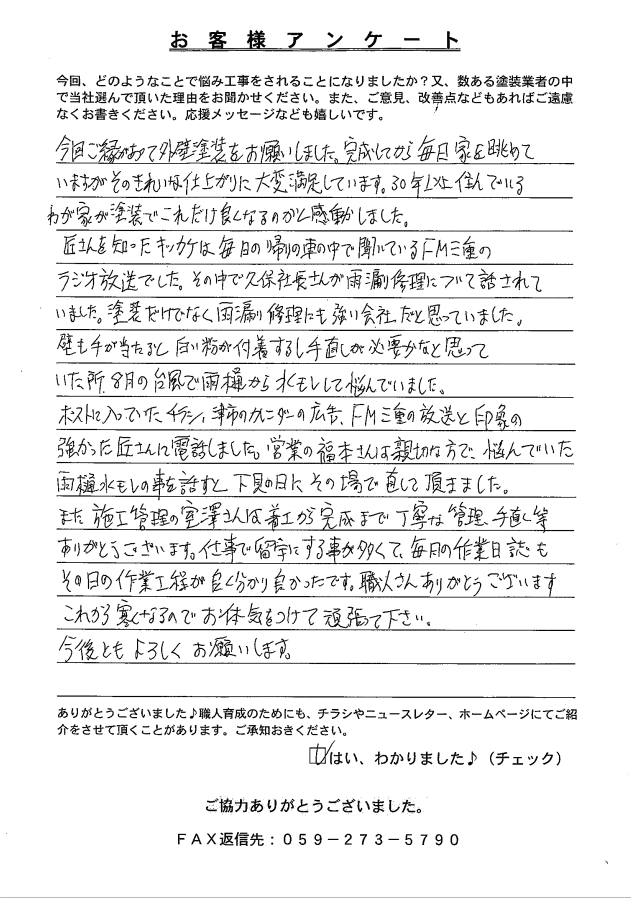 お客様アンケート
今回、どのようなことで悩み工事をされることになりましたか？又、数ある塗装業者の中
で当社選んで頂いた理由をお聞かせください。また、ご意見、改善点などもあればご遠慮
なくお書きください。応援メッセージなども嬉しいです。
今回ご縁があって外壁塗装をお願いしました。完成してから毎日家を眺めて
いますがそのきれいな仕上がりに大変満足しています。30年以上住んでいる
わが家が塗装でこれだけ良くなるのかと感動しました。
匠さんを知ったキッカケは毎日の帰りの車の中で聞いているFM三重の
ラジオ放送でした。その中で久保社長さんが雨漏り修理について話されて
いました。塗装だけでなく雨漏り修理にも強い会社だと思っていました。
壁も手が当たると白い粉が付着するし手直しが必要かなと思って
いた所、8月の台風で雨樋から水モレして悩んでいました。
ポストに入っていたチラシ、津市のカレンダーの広告、FM三重の放送と印象の
強かった匠さんに電話しました。営業の福本さんは親切な方で、悩んでいた
雨樋水モレの事を話すと下見の日にその場で直して頂きました。
また施工管理の室澤さんは、着工から完成まで丁寧な管理、手直し等
ありがとうございます。仕事で留守にする事が多くて、毎日の作業日誌も
その日の作業工程が良く分かり良かったです。職人さんありがとうございます
これから寒くなるのでお体気をつけて頑張って下さい。
今後ともよろしくお願いします。
ありがとうございました♪職人育成のためにも、チラシやニュースレター、ホームページにてご紹
介をさせて頂くことがあります。ご承知おきください。
はい、わかりました♪（チェック）
ご協力ありがとうございました。
ＦＡＸ返信先：０５９－２７３－５７９０